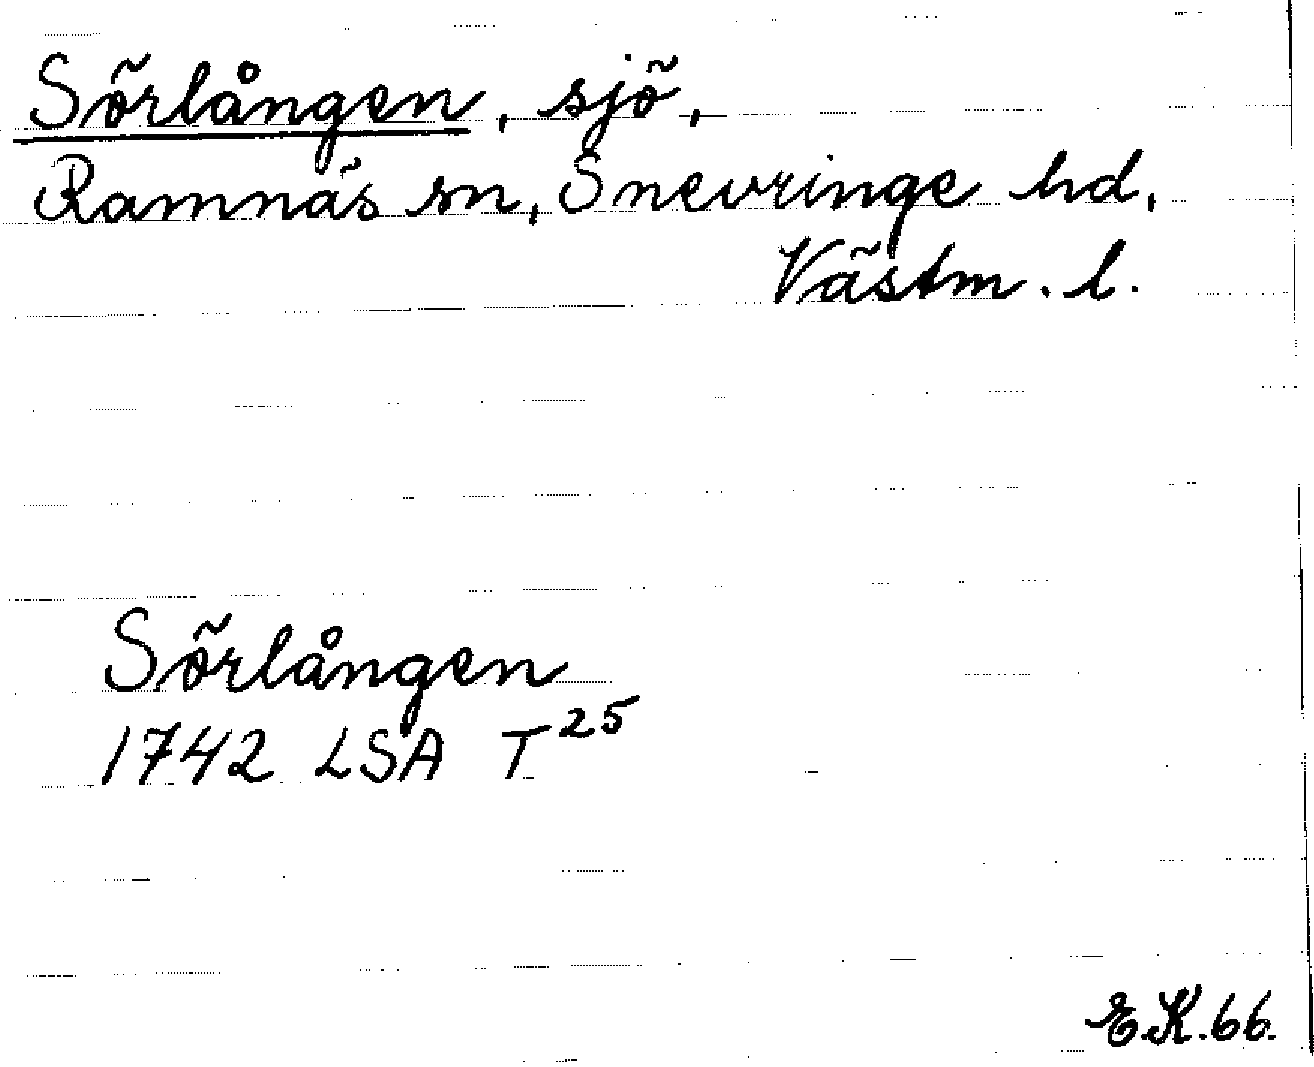 Sörlången, sjö,
Ramnäs sn, Snevringe hd,
Västm. l.
Sörlången
1742 LSA T25
E.K. 66.